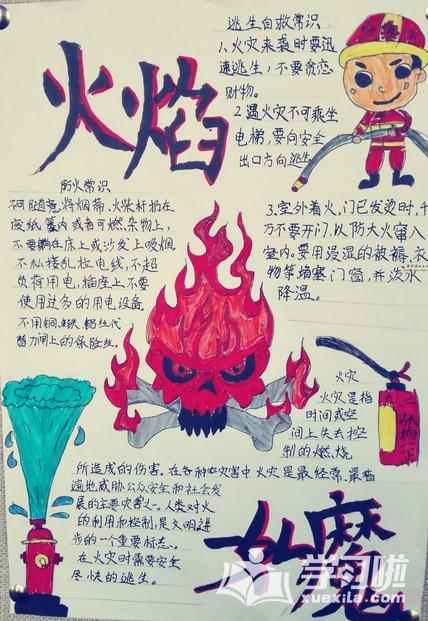 火焰
逃生自救常识
1、火灾来袭时要迅
速逃生，不要贪恋
财物。
2、遇火灾不可乘坐
电梯，要向安全
出口方向逃生。
3、室外着火，门已发烫时，千
万不要开门，以防大火窜入
室内。要用浸湿的被褥、衣
物等堵塞门窗，并泼水
降温。
防火常识
不可随意将烟蒂、火柴杆扔在
废纸篓内或者可燃杂物上，
不要躺在床上或沙发上吸烟。
不私接乱拉电线，不超
负荷用电，插座上不要
使用过多的用电设备
不用铜、铁、铝丝代
替刀闸上的保险丝。
火灾
火灾是指
时间或空
间上失去控
制的燃烧
所造成的伤害。在各种灾害中火灾是最经常、最普
遍地威胁公众安全和社会发
展的主要灾害之一。人类对火
的利用和控制，是文明进
步的一个重要标志。
在火灾时需要安全
尽快的逃生。
如魔
学习啦
xuexila.com